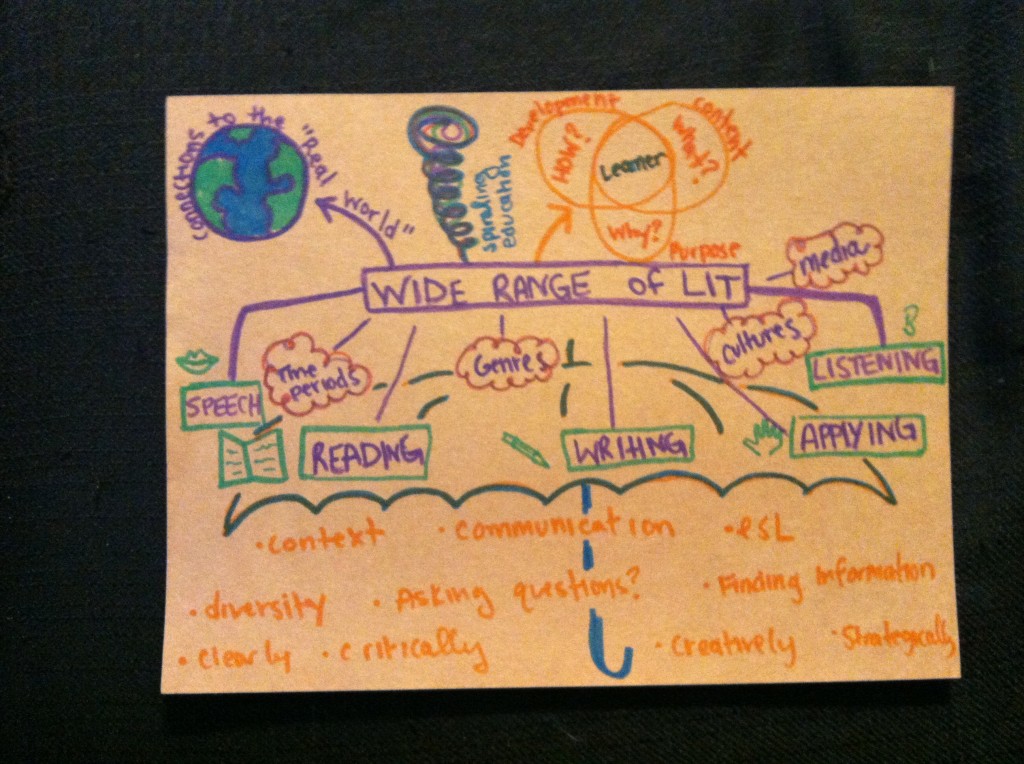 connections to the "Real World"
spiraling
education
Development
HOW?
content
What?
Learner
Why?
Purpose
media
WIDE RANGE of LIT
Time
periods
Genres
cultures
LISTENING
SPEECH
READING
WRITING
APPLYING
• context • communication • esL
• diversity • Asking questions? • Finding Information
• clearly • critically • creatively • strategically